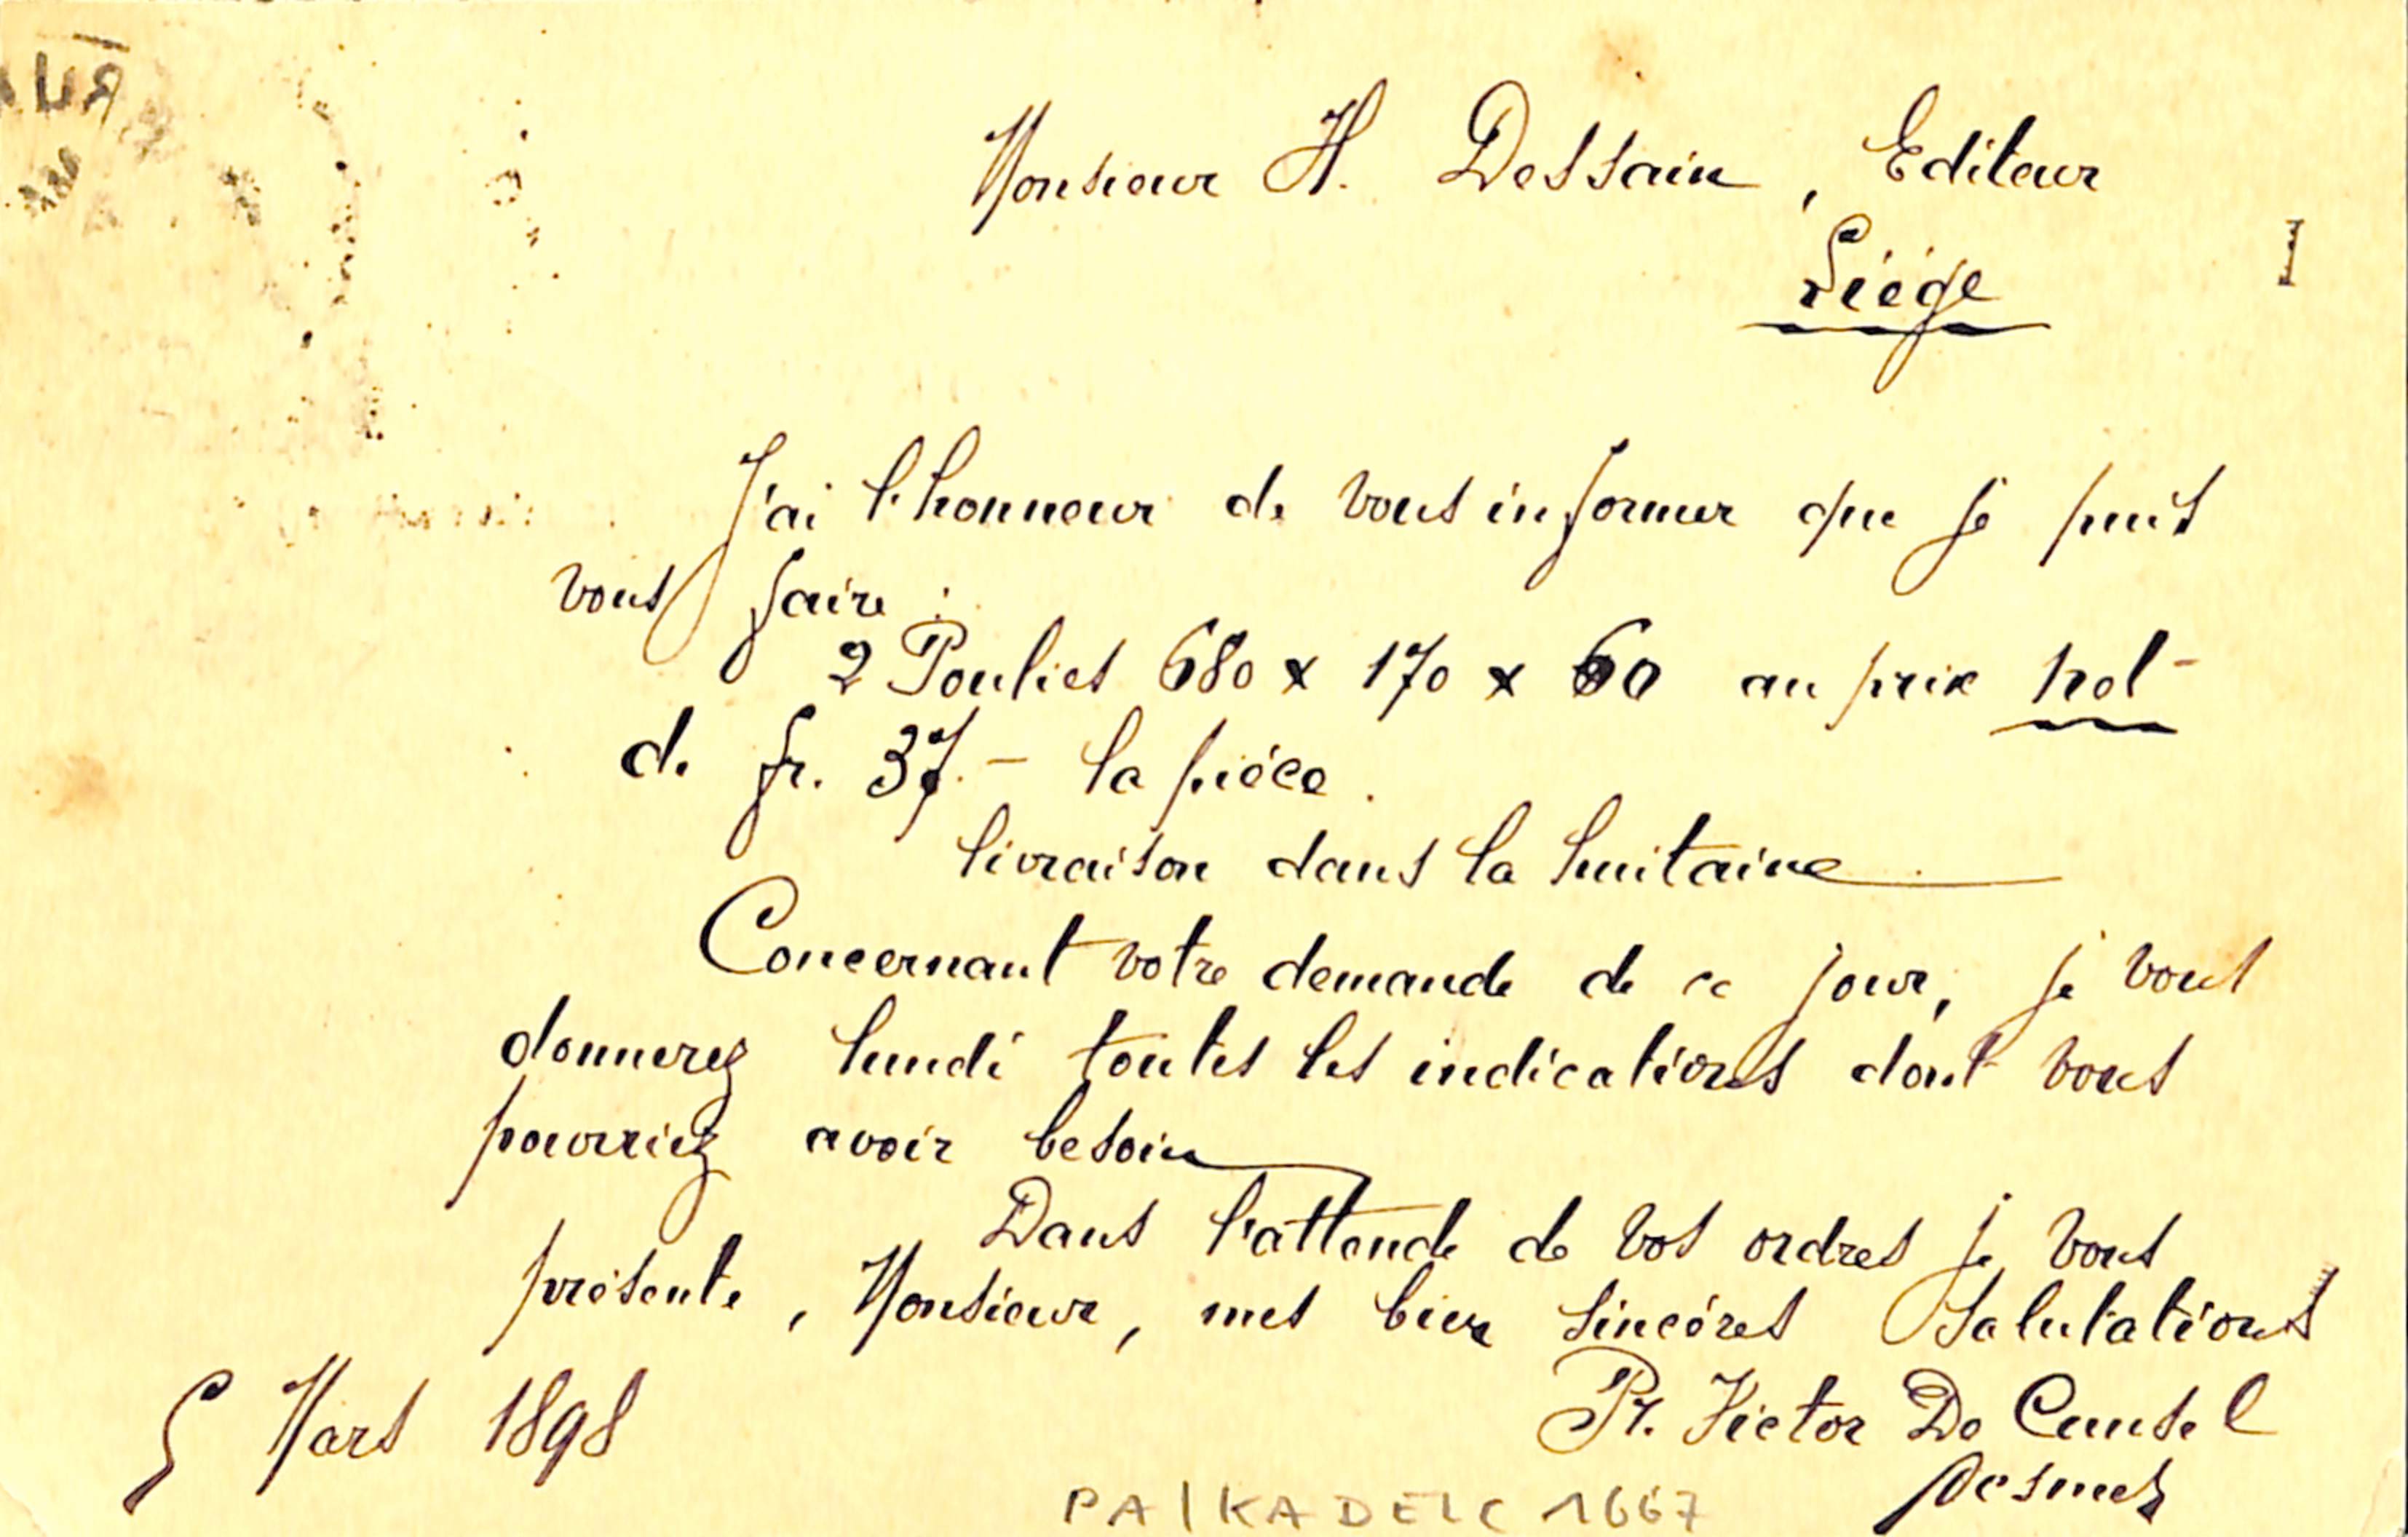 Monsieur H. Dessain, Editeur
Liége
J'ai l'honneur de vous informer que je puis
vous faire :
2 Poulies 680 x 170 x 60 au prix net
de fr. 37.- la pièce.
livraison dans la huitaine
Concernant votre demande de ce jour, je vous
donnerez lundi toutes les indications dont vous
pourriez avoir besoin
Dans l'attende de vos ordres je vous
présente, Monsieur, mes bien sincères Salutations
5 Mars 1898
Pr. Victor De
Desmet
PA/KADELC 1667